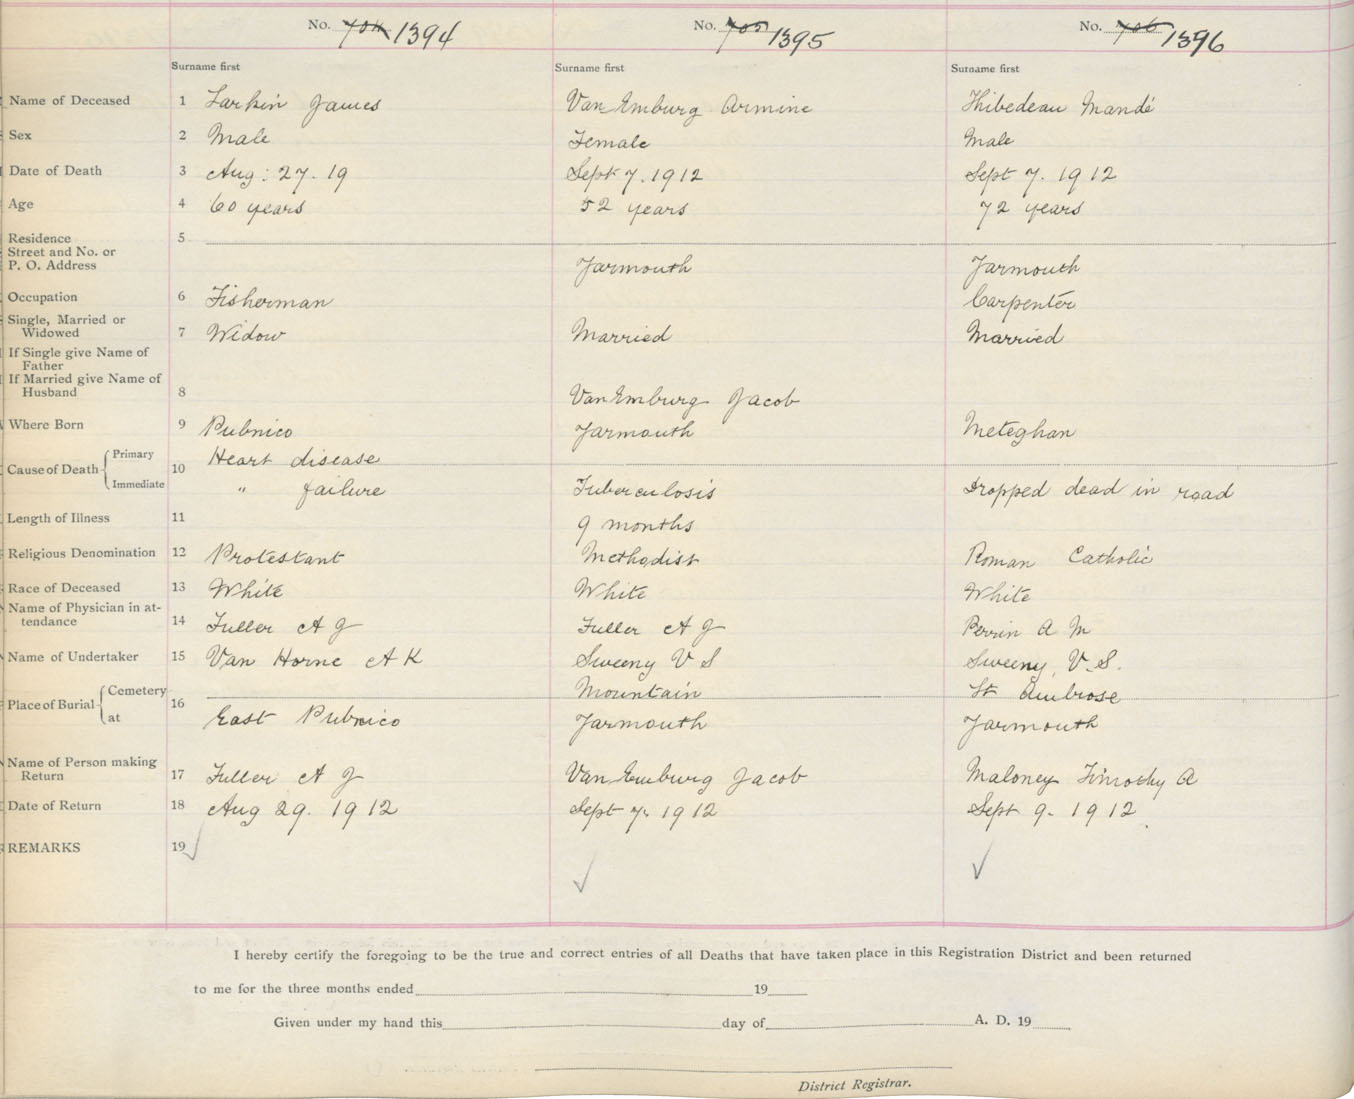 No. 704 1394 No. 705 1395 No. 706 1396
Surname first Surname first Surname first
Name of Deceased 1 Larkin James Van Emburg Armine Thibedeau Mandé
Sex 2 Male Female Male
Date of Death 3 Aug: 27. 19 Sept 7. 1912 Sept 7. 1912
Age 4 60 years 52 years 72 years
Residence 5
Street and No. or
P. O. Address Yarmouth Yarmouth
Occupation 6 Fisherman Carpenter
Single, Married or
Widowed 7 Widow Married Married
If Single give Name of
Father
If Married give Name of
Husband 8 Van Emburg Jacob
Where Born 9 Pubnico Yarmouth Meteghan
Cause of Death Primary 10 Heart disease
Immediate " failure Tuberculosis Dropped dead in road
Length of Illness 11 9 months
Religious Denomination 12 Protestant Methodist Roman Catholic
Race of Deceased 13 White White White
Name of Physician in at-
tendance 14 Fuller A J Fuller A J Perrin A M
Name of Undertaker 15 Van Horne A K Sweeny V S Sweeny V. S.
Place of Burial Cemetery 16 Mountain St Ambrose
at East Pubnico Yarmouth Yarmouth
Name of Person making
Return 17 Fuller A J Van Emburg Jacob Maloney Timothy A
Date of Return 18 Aug 29. 1912 Sept 7. 1912 Sept 9. 1912
REMARKS 19
I hereby certify the foregoing to be the true and correct entries of all Deaths that have taken place in this Registration District and been returned
to me for the three months ended 19
Given under my hand this day of A. D. 19
District Registrar.